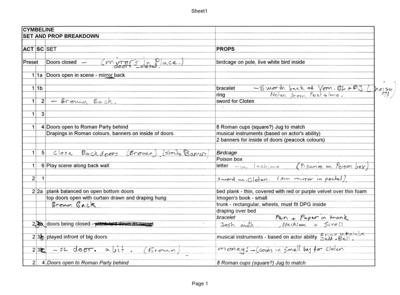 Sheet1
CYMBELINE
SET AND PROP BREAKDOWN
ACT SC SET PROPS
Preset Doors closed - (mirrors in place.) birdcage on pole, live white bird inside
doors closed
1 1a Doors open in scene - mirror back
1 1b bracelet
ring
1 2 - Brown Back. sword for Cloten
1 3
1 4 Doors open to Roman Party behind 8 Roman cups (square?) Jug to match
Drapings in Roman colours, banners on inside of doors musical instruments (based on actor's ability)
2 banners for inside of doors (peacock colours)
1 5 Close Backdoors (Brown) Birdcage
Poison box
1 6 Play scene along back wall letter
2 1 sword on Cloten. (sm mirror in pocket).
2 2a plank balanced on open bottom doors bed plank - thin, covered with red or purple velvet over thin foam
top doors open with curtain drawn and draping hung Imogen's book - small
Brown Back trunk - rectangular, wheels, must fit DPG inside
draping over bed
bracelet Pen + Paper in trunk
doors being closed - Necklace + Scroll
played infront of big doors musical instruments - based on actor ability
- SL door. a bit. (Brown) money: - (coins in small bag for Cloten
2 4 Doors open to Roman Party behind 8 Roman cups (square?) Jug to match
Page 1